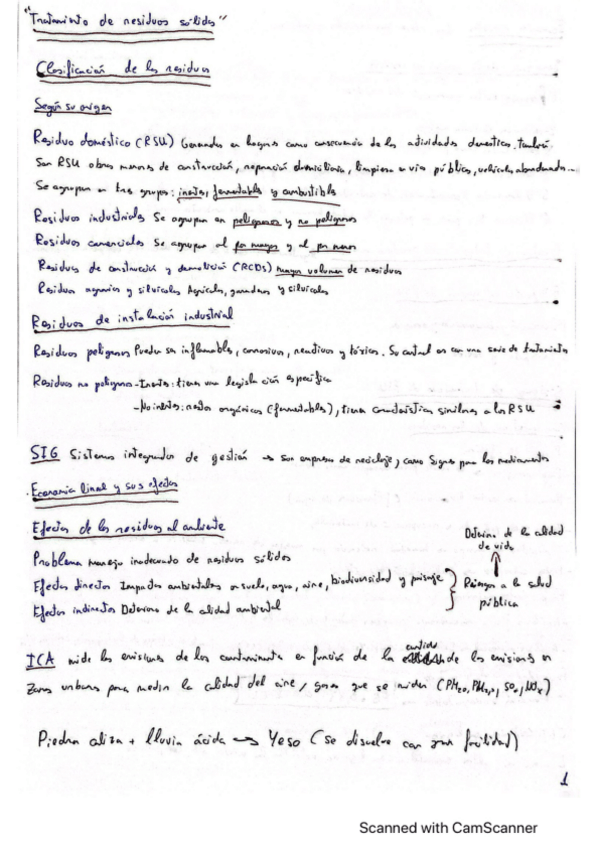 "Tratamiento de residuos sólidos"
Clasificación de los residuos
Según su origen
Residuo doméstico (RSU) Generados en hogares como consecuencia de las actividades domesticas. También
Son RSU obras menores de construcción, reparación domiciliaria, limpieza en vía pública, vehículos abandonados...
Se agrupan en tres grupos: inertes, fermentables y combustibles
Residuos industriales Se agrupan en peligrosos y no peligrosos
Residuos comerciales Se agrupan al por mayor y al por menor
Residuos de construcción y demolición (RCDs) mayor volumen de residuos
Residuos agrarios y silvícolas Agrícolas, ganaderos y silvícolas
Residuos de instalación industrial
Residuos peligrosos Pueden ser inflamables, corrosivos, reactivos y tóxicos. Su control es con una serie de tratamientos
Residuos no peligrosos - Inertes: tienen una legislación específica
- No inertes: restos orgánicos (fermentables), tienen características similares a los RSU
SIG Sistemas integrados de gestión → son empresas de reciclaje, como Sigre para los medicamentos
Economía lineal y sus efectos
Efectos de los residuos al ambiente
Deterioro de la calidad
de vida
Problema manejo inadecuado de residuos sólidos
Efectos directos Impactos ambientales en suelo, agua, aire, biodiversidad y paisaje
Riesgos a la salud
pública
Efectos indirectos Deterioro de la calidad ambiental
ICA mide las emisiones de los contaminantes en función de la cantidad de las emisiones en
Zonas urbanas para medir la calidad del aire / gases que se miden
Piedra caliza + lluvia ácida → Yeso (se disuelve con gran facilidad)
1
Scanned with CamScanner